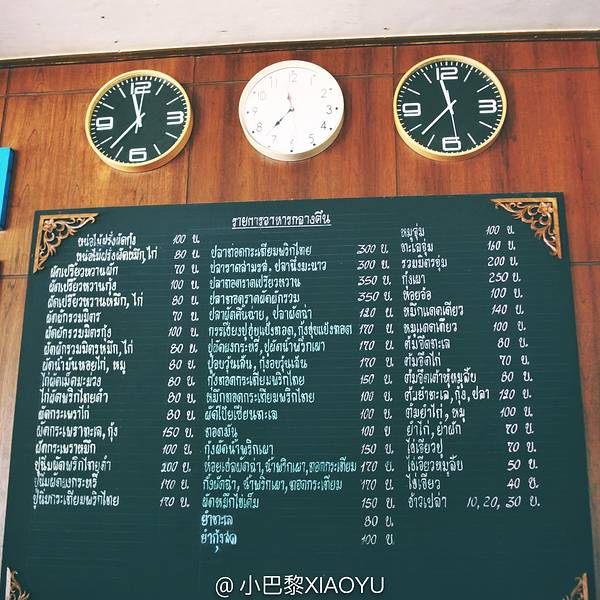 รายการอาหารกลางคืน
หน่อไม้ฝรั่งผัดกุ้ง 100 บ.
หน่อไม้ฝรั่งผัดหมึก, ไก่ 80 บ.
ผัดเปรี้ยวหวานผัก 70 บ.
ผัดเปรี้ยวหวานกุ้ง 100 บ.
ผัดเปรี้ยวหวานหมึก, ไก่ 80 บ.
ผัดผักรวมมิตร 70 บ.
ผัดผักรวมมิตรกุ้ง 100 บ.
ผัดผักรวมมิตรหมึก, ไก่ 80 บ.
ผัดน้ำมันหอยไก่, หมู 80 บ.
ไก่ผัดเม็ดมะม่วง 80 บ.
ไก่ผัดพริกไทยดำ 80 บ.
ผัดกระเพราไก่ 80 บ.
ผัดกระเพราทะเล, กุ้ง 150 บ.
ผัดกระเพราหมึก 100 บ.
ปูนิ่มผัดพริกไทยดำ 200 บ.
ปูนิ่มผัดผงกระหรี่ 170 บ.
ปูนิ่มกระเทียมพริกไทย 170 บ.
ปลาทอดกระเทียมพริกไทย 300 บ.
ปลาราดสามรส, ปลานึ่งมะนาว 300 บ.
ปลาทอดราดเปรี้ยวหวาน 350 บ.
ปลาทอดราดผัดผักรวม 350 บ.
ปลาผัดคื่นฉ่าย, ปลาผัดฉ่า 120 บ.
170 บ.
ปูผัดผงกระหรี่, ปูผัดน้ำพริกเผา 170 บ.
ปูอบวุ้นเส้น, กุ้งอบวุ้นเส้น 170 บ.
กุ้งทอดกระเทียมพริกไทย 150 บ.
หมึกทอดกระเทียมพริกไทย 100 บ.
ผัดโป๊ยเซียนทะเล 100 บ.
ทอดมัน 100 บ.
กุ้งผัดน้ำพริกเผา 150 บ.
หอยเชลล์ผัดฉ่า, น้ำพริกเผา, ทอดกระเทียม 170 บ.
กุ้งผัดฉ่า, น้ำพริกเผา, ทอดกระเทียม 170 บ.
ผัดหมึกไข่เค็ม 150 บ.
ยำทะเล 80 บ.
ยำกุ้งสด 100 บ.
หมูจุ่ม 100 บ.
ทะเลจุ่ม 160 บ.
รวมมิตรจุ่ม 200 บ.
กุ้งเผา 250 บ.
หอยจ๊อ 100 บ.
หมึกแดดเดียว 140 บ.
หมูแดดเดียว 100 บ.
ต้มจืดทะเล 80 บ.
ต้มจืดไก่ 70 บ.
ต้มจืดเต้าหู้หมูสับ 80 บ.
ต้มยำทะเล, กุ้ง, ปลา 120 บ.
ต้มยำไก่, หมู 100 บ.
ยำไก่, ยำผัก 70 บ.
ไข่เจียวปู 70 บ.
ไข่เจียวหมูสับ 50 บ.
ไข่เจียว 40 บ.
ข้าวเปล่า 10, 20, 30 บ.
@小巴黎XIAOYU